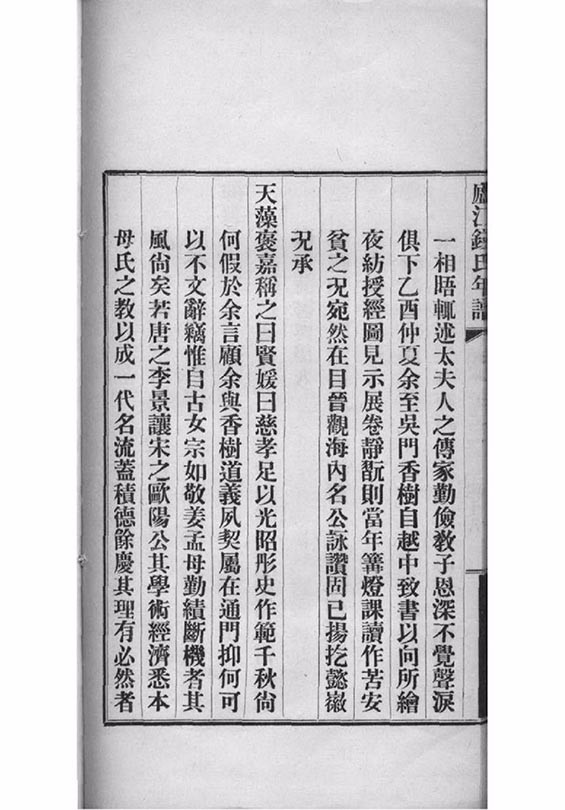 廬江錢氏年譜
一相晤輒述太夫人之傳家勤儉敎子恩深不覺聲淚
俱下乙酉仲夏余至吳門香樹自越中致書以向所繪
夜紡授經圖見示展卷靜翫則當年篝燈課讀作苦安
貧之況宛然在目晉觀海內名公詠讚固已揚扢懿嶶
況承
天藻褒嘉稱之曰賢媛曰慈孝足以光昭彤史作範千秋尙
何假於余言顧余與香樹道義夙契屬在通門抑何可
以不文辭竊惟自古女宗如敬姜孟母勤績斷機者其
風尙矣若唐之李景讓宋之歐陽公其學術經濟悉本
母氏之敎以成一代名流蓋積德餘慶其理有必然者